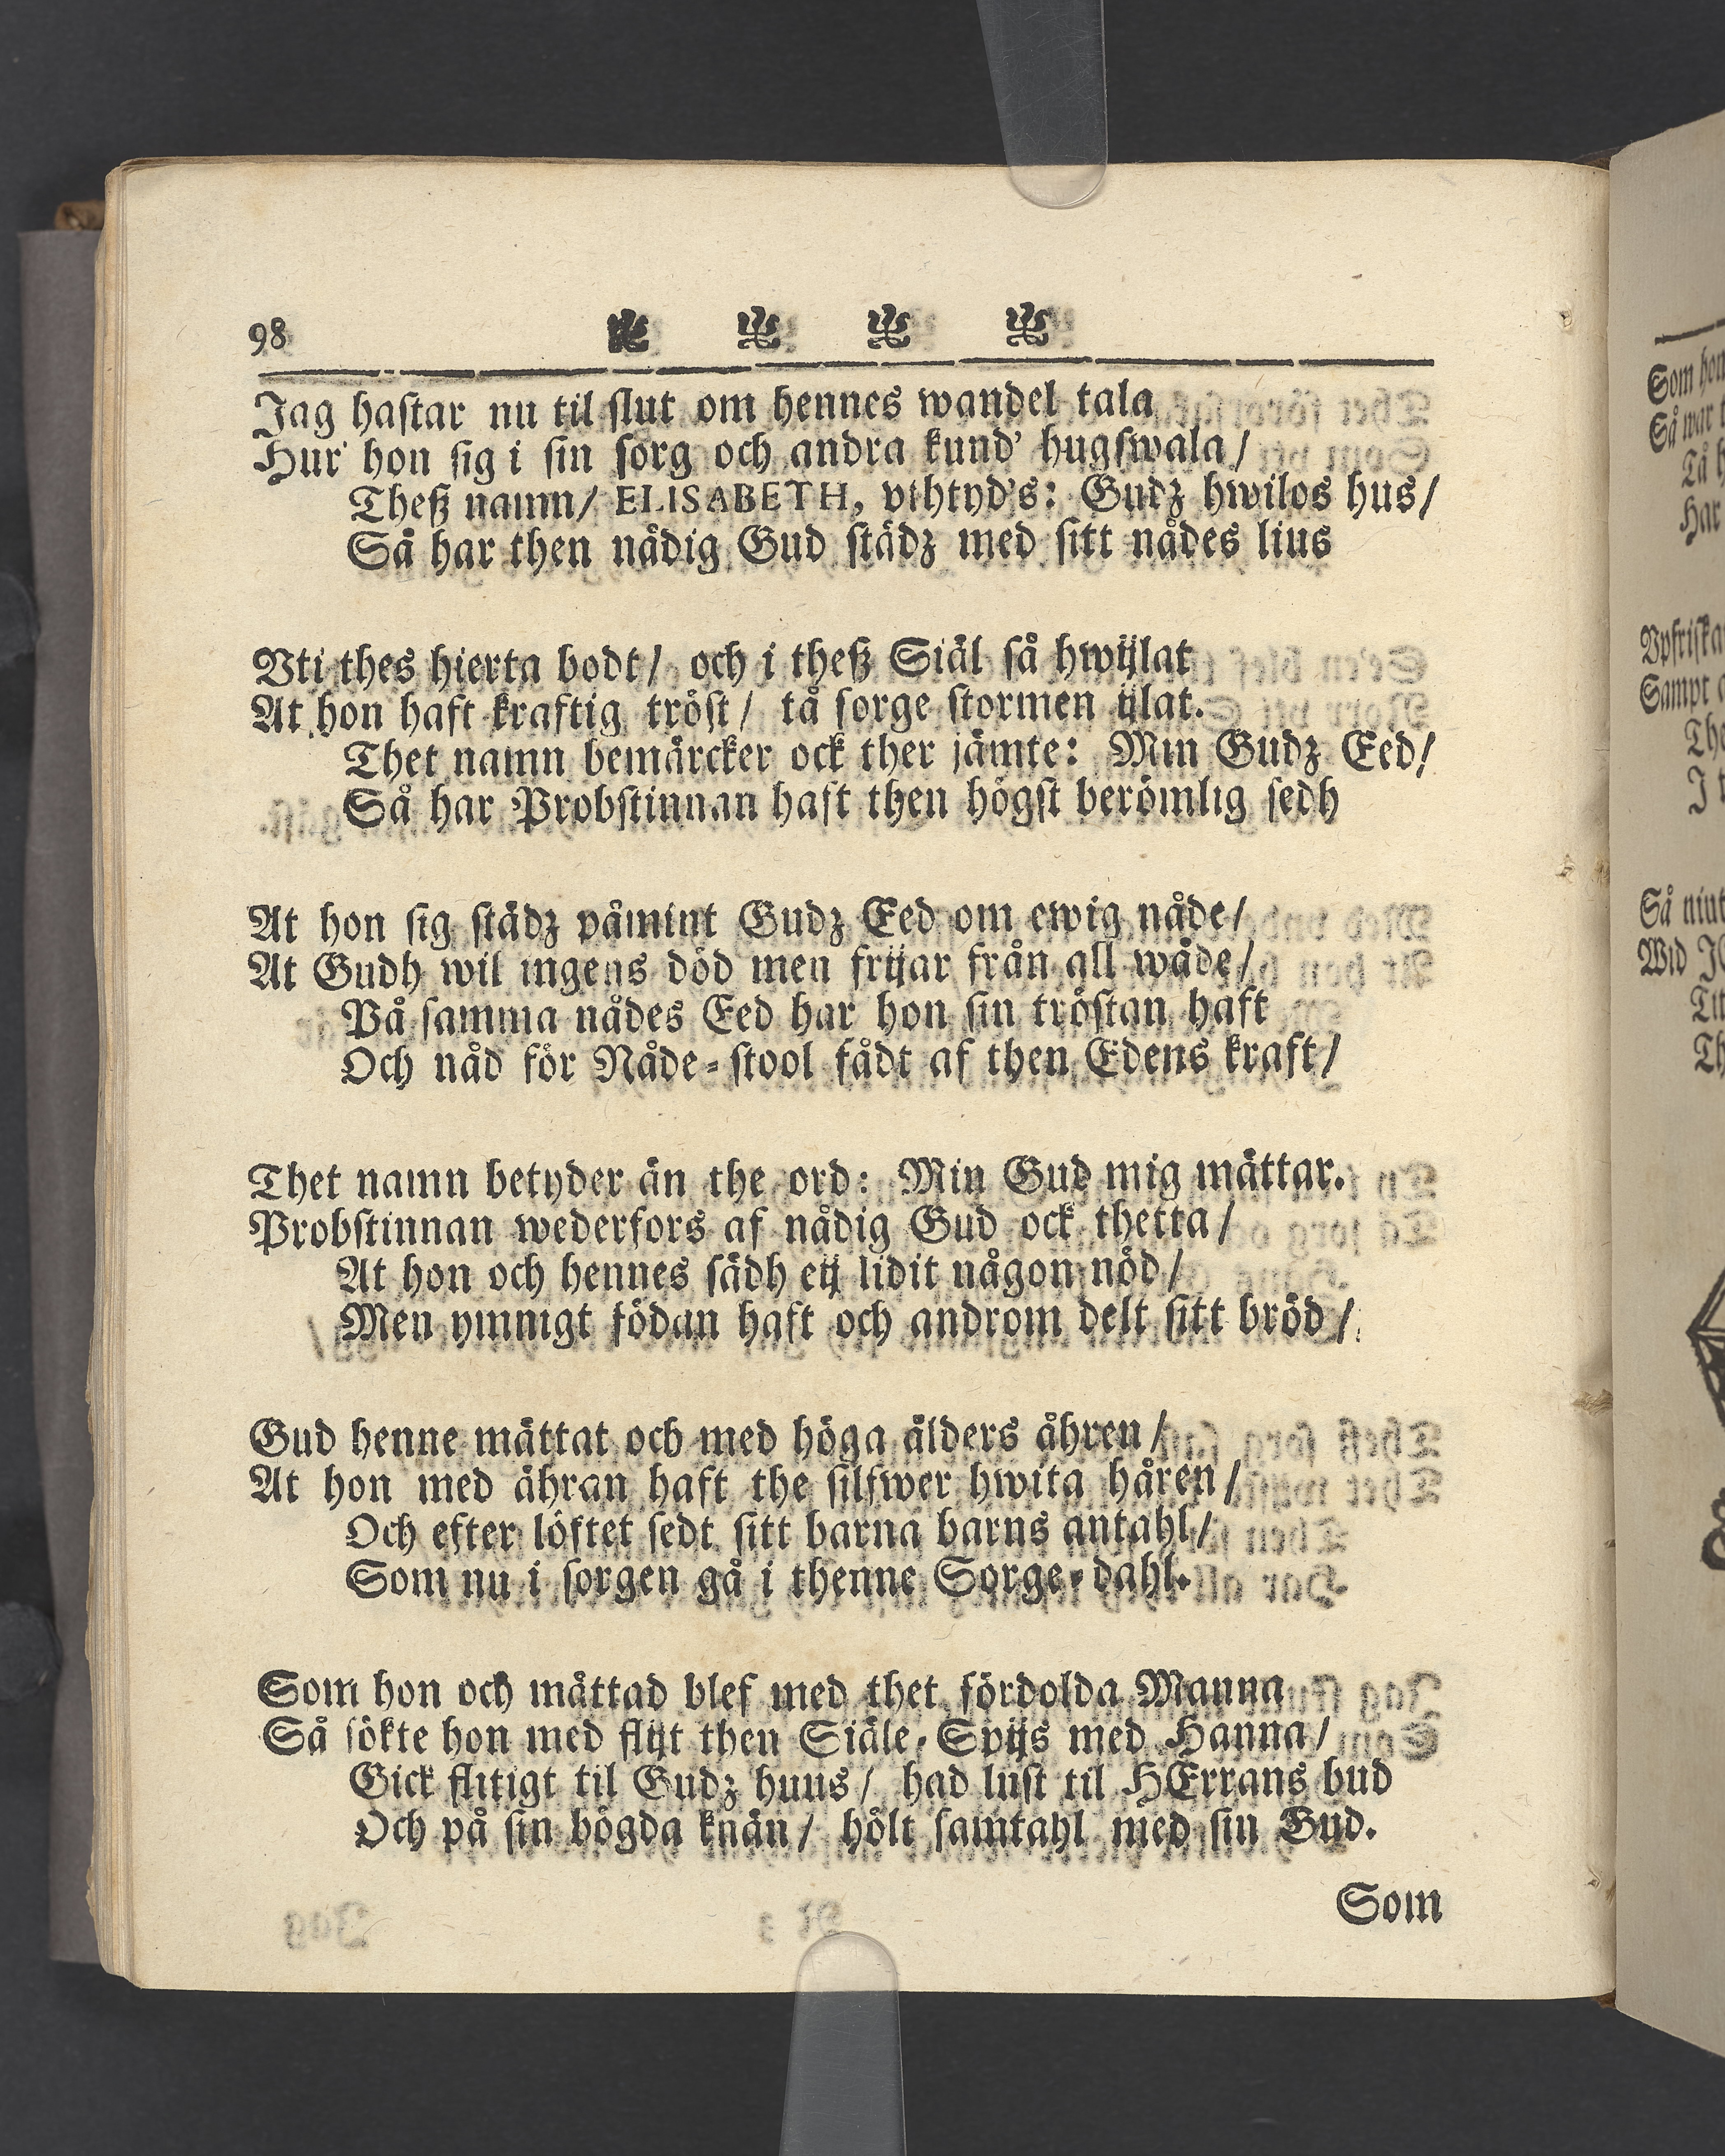 98
Jag hastar nu til slut om hennes wandel tala
Hur' hon sig i sin sorg och andra kund' hugswala /
Theß namn / ELISABETH, vthtyd's: Gudz hwilos hus /
Så har then nådig Gud städz med sitt nådes lius
Vti thes hierta bodt / och i theß Siäl så hwijlat
At hon haft kraftig tröst / tå sorge stormen ijlat.
Thet namn bemärcker ock ther jämte: Min Gudz Eed /
Så har Probstinnan haft then högst berömlig sedh
At hon sig städz påmint Gudz Eed om ewig nåde /
At Gudh wil ingens död men frijar från all wåde /
På samma nådes Eed har hon sin tröstan haft
Och nåd för Nåde-stool fådt af then Edens kraft /
Thet namn betyder än the ord: Min Gud mig mättar.
Probstinnan wederfors af nådig Gud ock thetta /
At hon och hennes sädh eij lidit någon nöd /
Men ymnigt födan haft och androm delt sitt bröd /
Gud henne mättat och med höga ålders åhren /
At hon med ähran haft the silfwer hwita håren /
Och efter löftet sedt sitt barna barns antahl /
Som nu i sorgen gå i thenne Sorge-dahl.
Som hon och mättad blef med thet fördolda Manna
Så sökte hon med flijt then Siäle-Spijs med Hanna /
Gick flitigt til Gudz huus / had lust til HErrans bud
Och på sin bögda knän / hölt samtahl med sin Gud.
Som